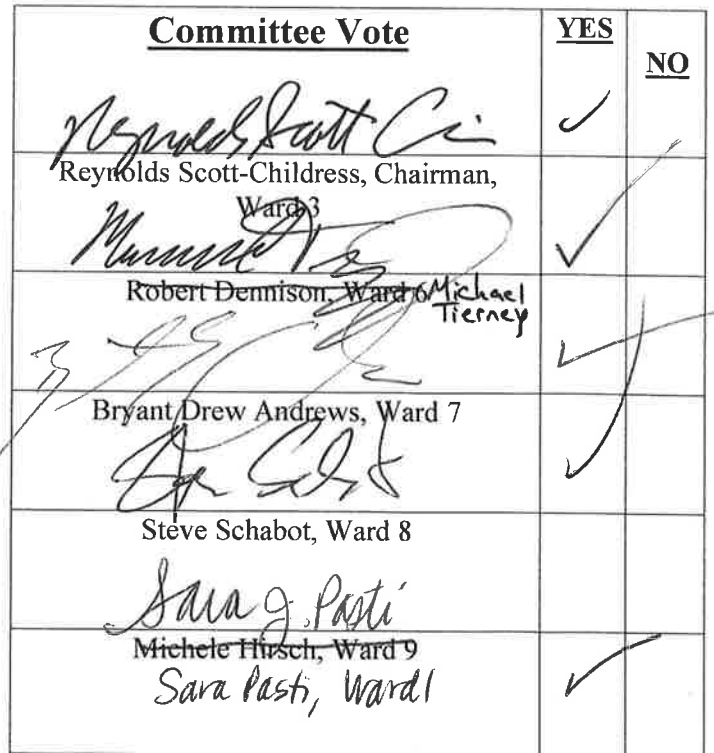 Committee Vote YES NO
Reynolds Scott
Reynolds Scott-Childress, Chairman,
Ward 3
Robert Dennison, Ward 6 Michael
Tierney
Bryant Drew Andrews, Ward 7
Steve Schabot, Ward 8
Sara J. Pasti
Michele Hirsch, Ward 9
Sara Pasti, Ward 1